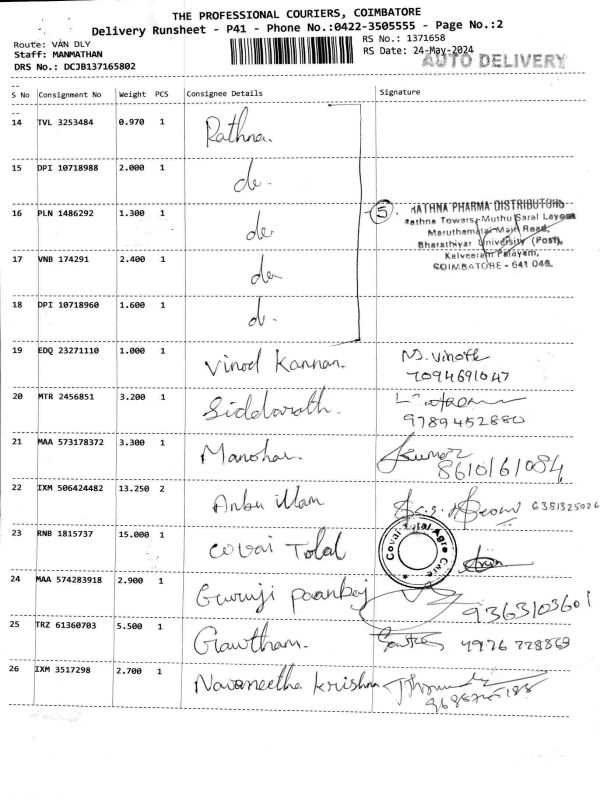 THE PROFESSIONAL COURIERS, COIMBATORE
Delivery Runsheet - P41 - Phone No.:0422-3505555 - Page No.:2
Route: VAN DLY
RS No.: 1371658
Staff: MANMATHAN
RS Date: 24-May-2024
DRS No.: DCJB137165802
AUTO DELIVERY
S No Consignment No Weight PCS Consignee Details Signature
14 TVL 3253484 0.970 1 Rathna.
15 DPI 10718988 2.000 1 do.
16 PLN 1486292 1.300 1 do
17 VNB 174291 2.400 1 do
18 DPI 10718960 1.600 1 do.
5.
RATHNA PHARMA DISTRIBUTORS
Rathna Towers, Muthu Saral Layout
Maruthamalai Main Road,
Bharathiyar University (Post),
Kalveeram Palayam,
COIMBATORE - 641 046.
19 EDQ 23271110 1.000 1 Vinod Kannan. M. Vinoth
7094691047
20 MTR 2456851 3.200 1 Siddarath.
9789452880
21 MAA 573178372 3.300 1 Manohar. Kumar
8610161084
22 IXM 506424482 13.250 2 Anbu illam 6381325026
23 RNB 1815737 15.000 1 Covai Total
Covai Total Agro Care
24 MAA 574283918 2.900 1 Guruji
9363103601
25 TRZ 61360703 5.500 1 Gawtham.
26 IXM 3517298 2.700 1 Navaneetha Krishna